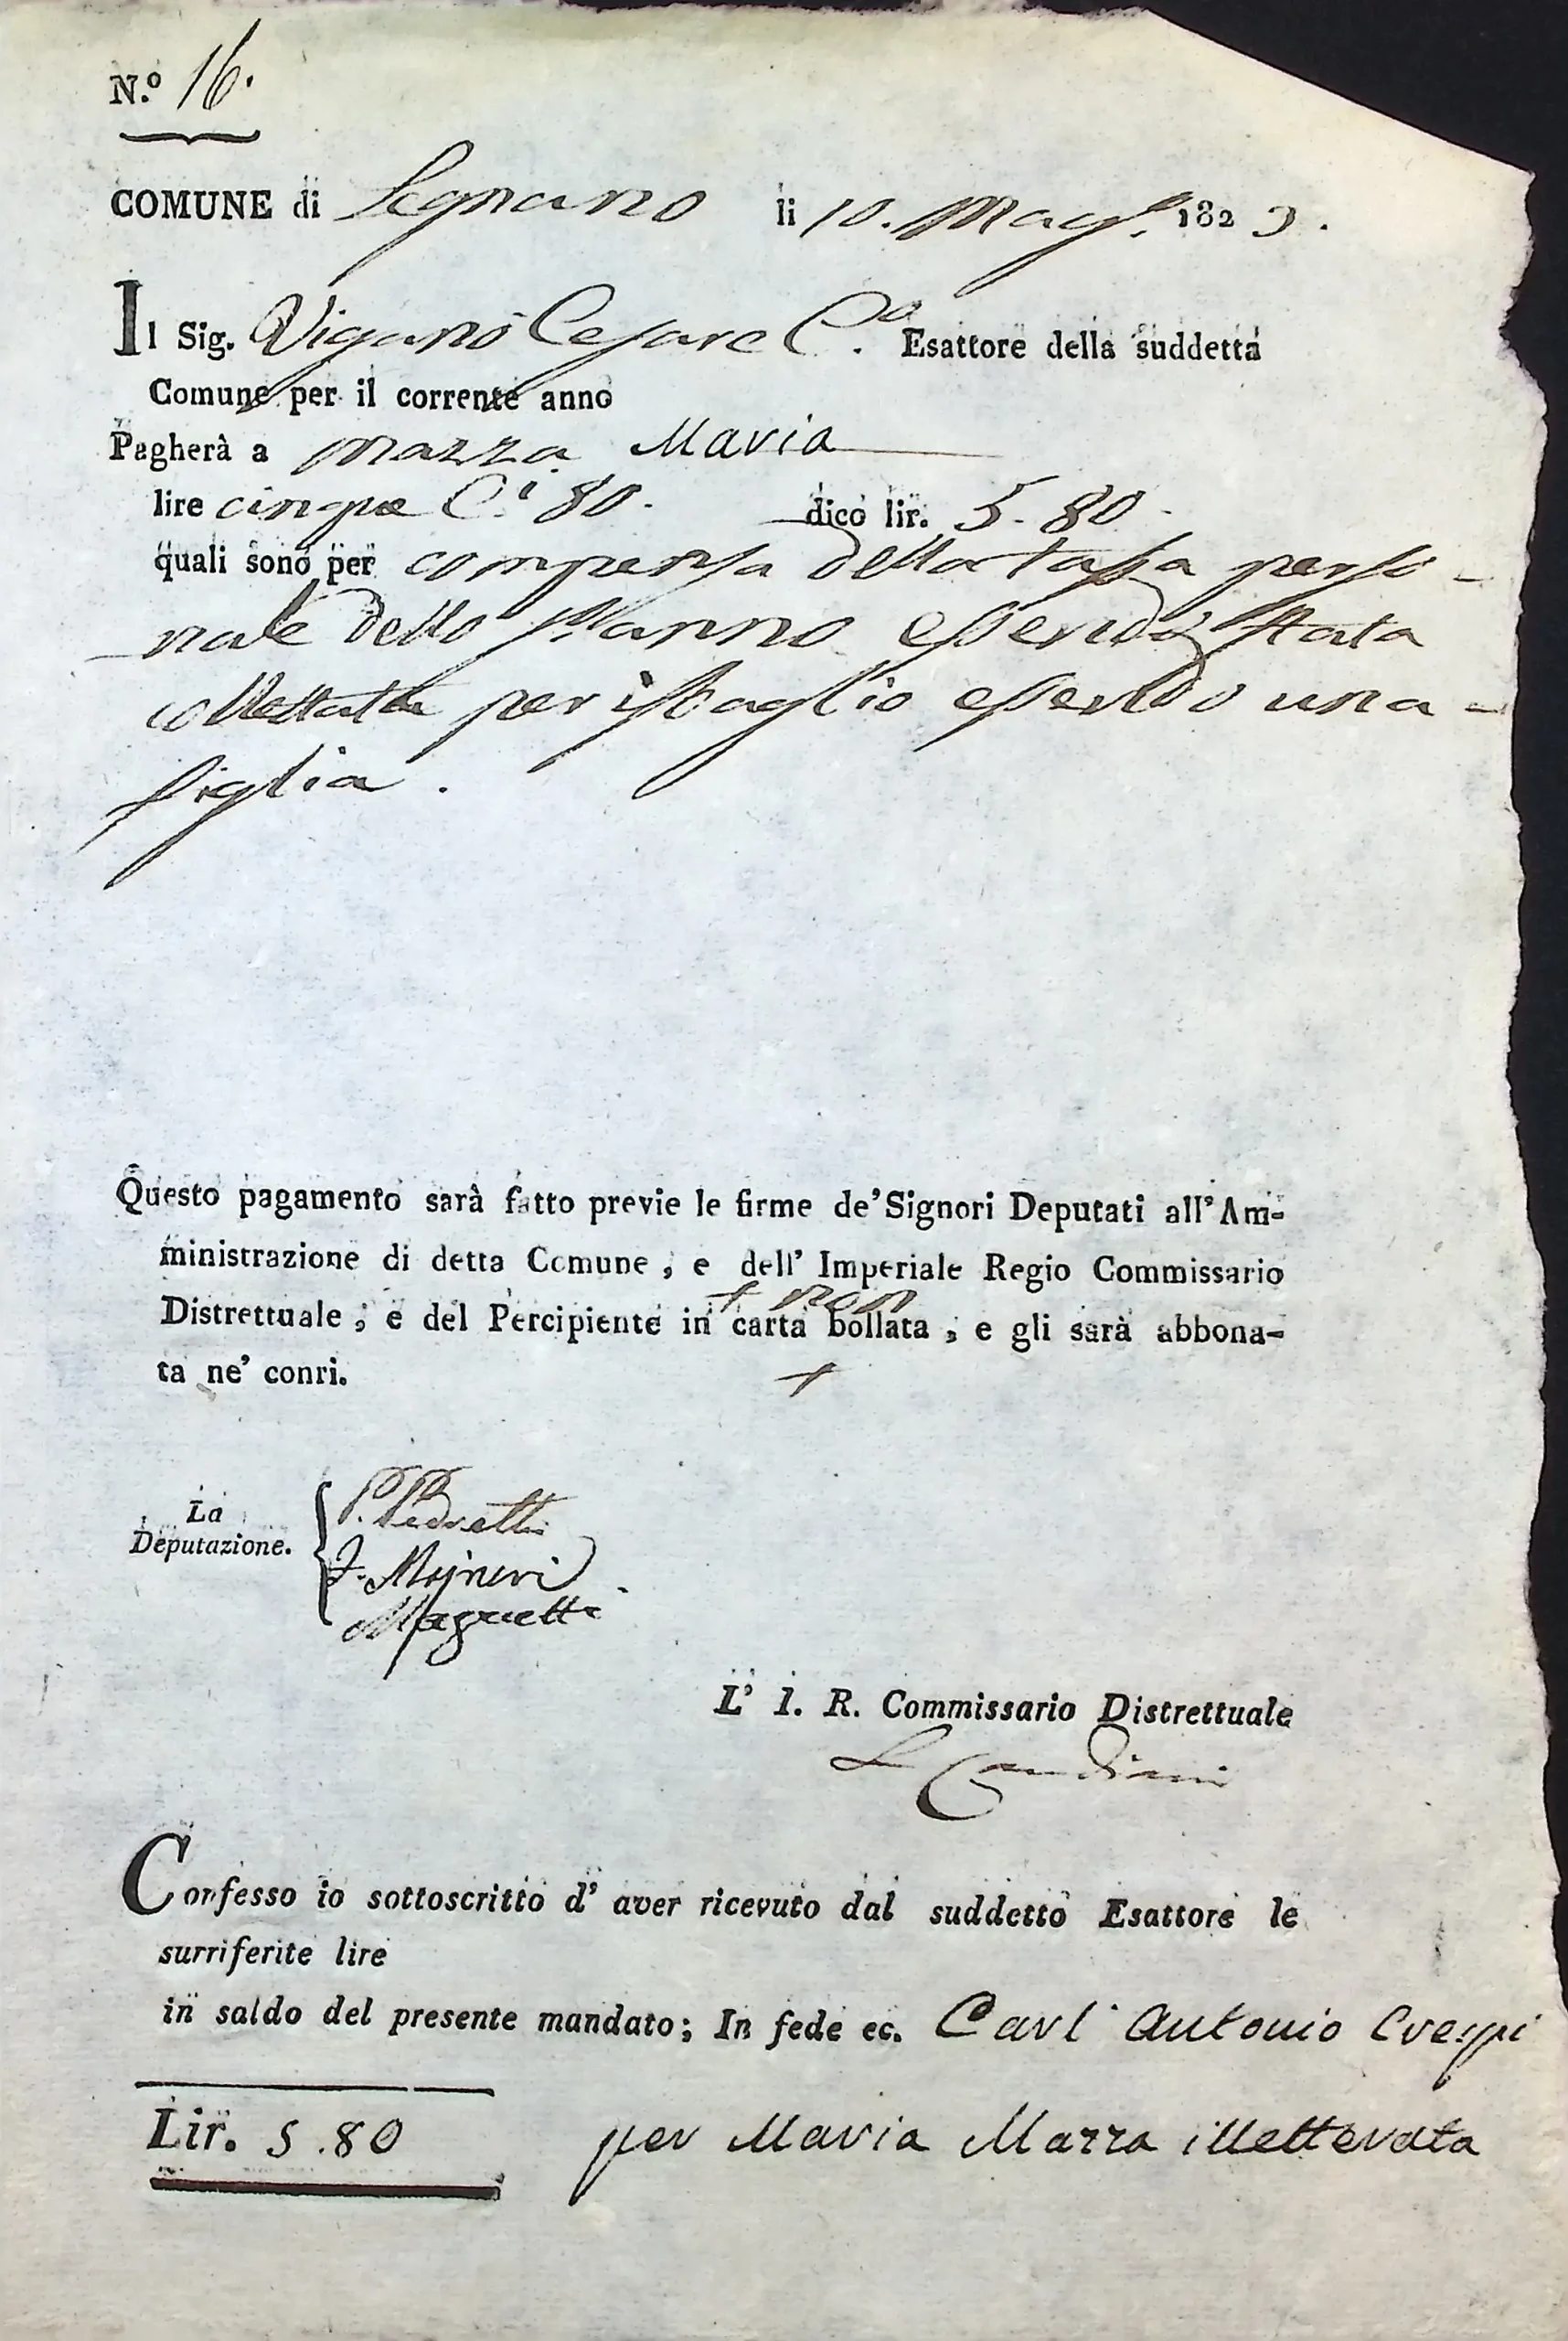 N.º 16.
COMUNE di Legnano li 10. Mag. 1823.
Il Sig. Viganò Cesare C.º Esattore della suddetta
Comune per il corrente anno
Pagherà a Mazza Maria
lire cinque C.i 80. dico lir. 5. 80.
quali sono per compensa della tassa perso-
nale dello anno essendo stata
collettata per isbaglio essendo una
figlia.
Questo pagamento sarà fatto previe le firme de' Signori Deputati all' Am-
ministrazione di detta Comune, e dell' Imperiale Regio Commissario
+ non
Distrettuale, e del Percipiente in carta bollata, e gli sarà abbona-
ta ne' conri.
+
La
Deputazione.
P. Pedretti
Magnetti
L' I. R. Commissario Distrettuale
Candiani
Confesso io sottoscritto d' aver ricevuto dal suddetto Esattore le
surriferite lire
in saldo del presente mandato; In fede ec. Carl' Antonio Crespi
Lir. 5.80 per Maria Mazza illetterata